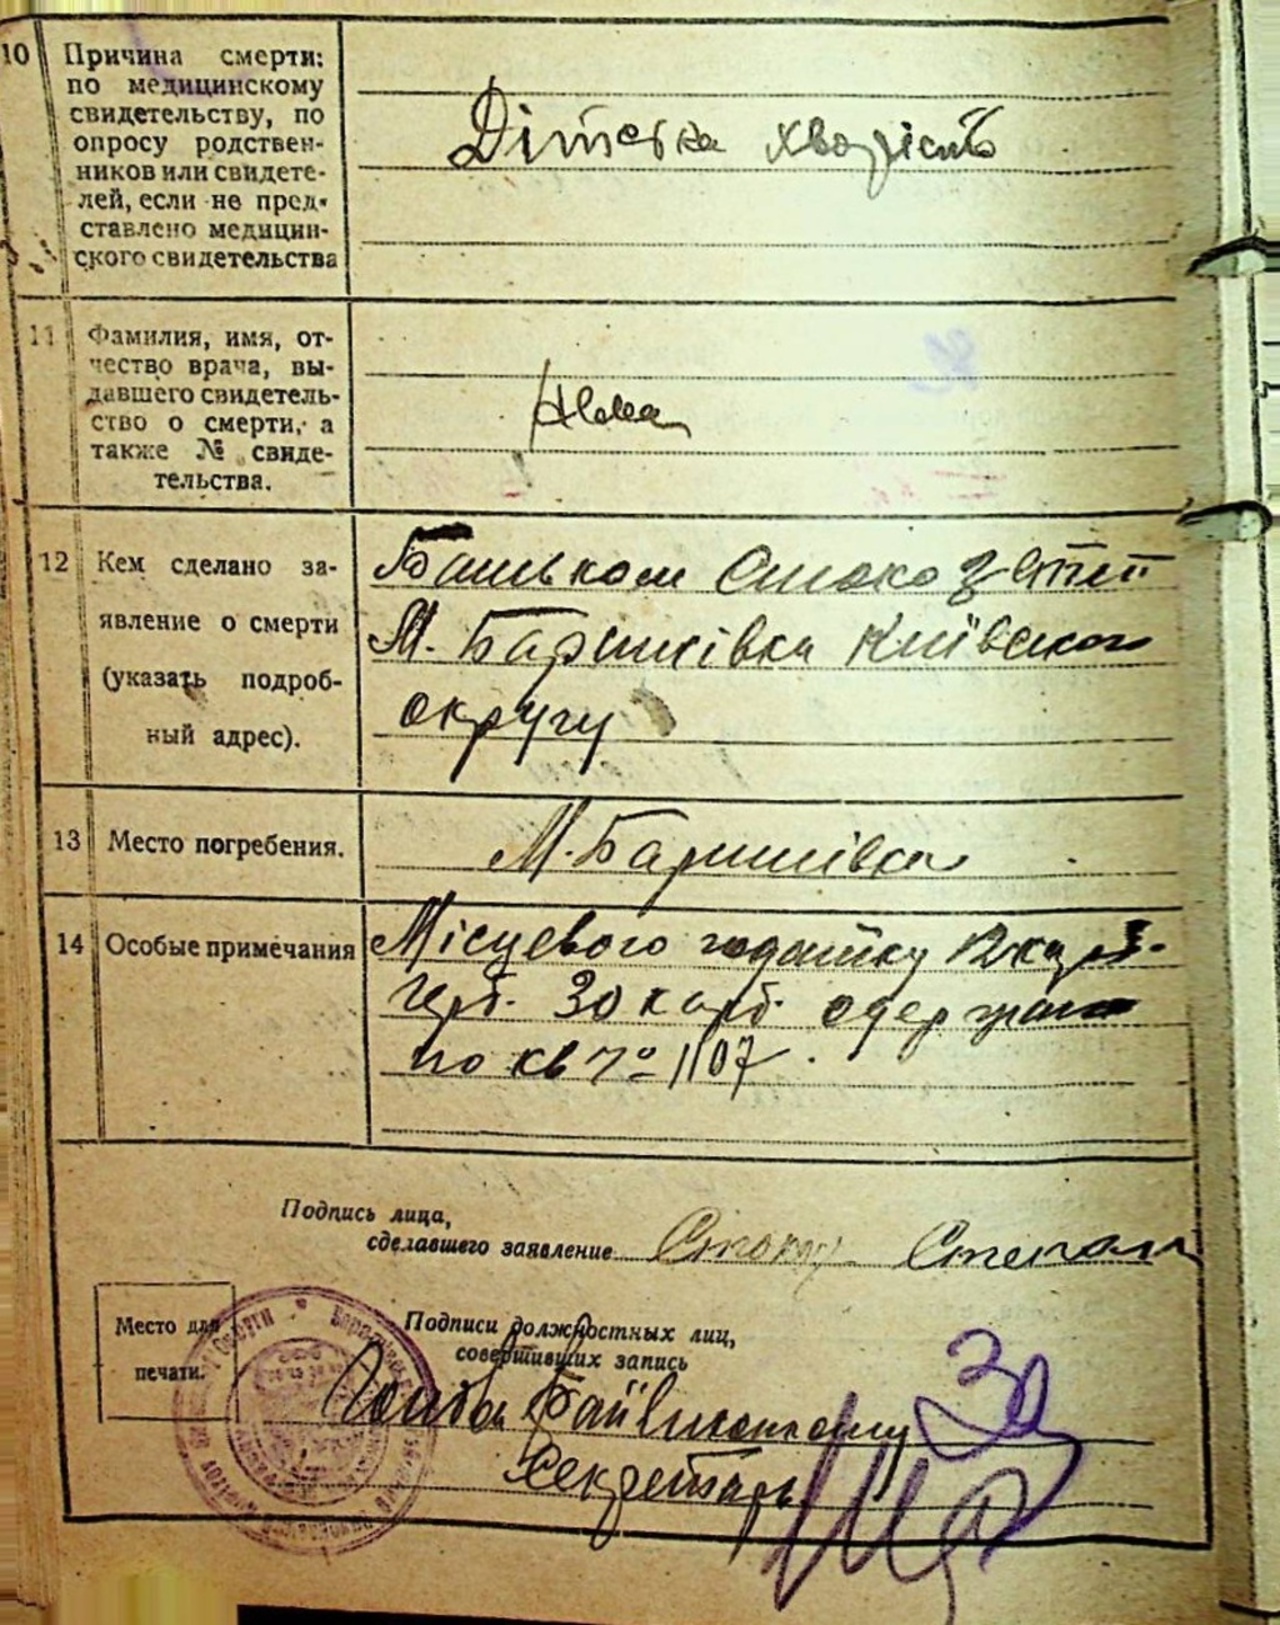 10 Причина смерти:
по медицинскому
свидетельству, по
опросу родствен-
ников или свидете-
лей, если не пред-
ставлено медицин-
ского свидетельства
Дітська хворість
11 Фамилия, имя, от-
чество врача, вы-
давшего свидетель-
ство о смерти, а
также № свиде-
тельства.
Нема
12 Кем сделано за-
явление о смерти
(указать подроб-
ный адрес).
Батьком
М. Баришівка Київського
округу
13 Место погребения.
М. Баришівка
14 Особые примечания
Місцевого податку 12 карб.
герб. 30 карб. одержано
по кв № 1107.
Подпись лица,
сделавшего заявление
Степан
Место для
печати.
Подписи должностных лиц,
совершивших запись
Голова
Секретарь
За